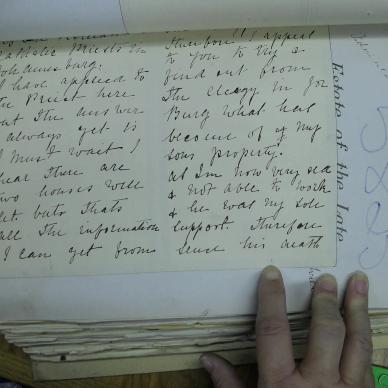 Catholic Priests in
Johannesburg.
I have applied to
the Priest here
but the answer
I always get is
I must wait I
hear there are
two houses well
let buts thats
all the information
I can get from
therefore I appeal
to you to try &
find out from
the clergy in Jor
Burg what has
become of my
sons property.
as Im now very sea
& not able to work
& he was my sole
support. Therefore
since his death
Estate of the Late